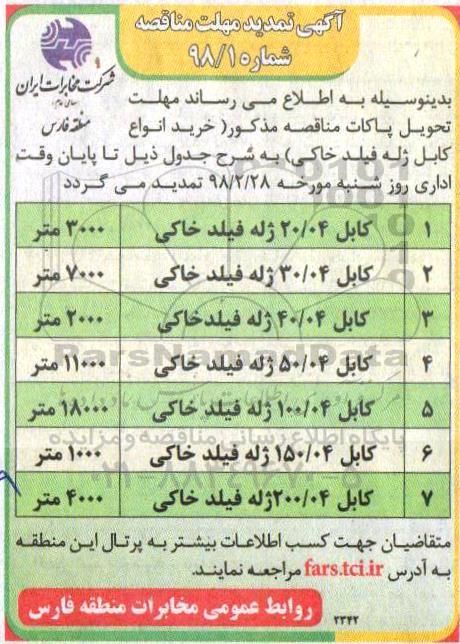 آگهی تمدید مهلت مناقصه
شماره ۹۸/۱
شرکت مخابرات ایران
سهامی عام
منطقه فارس
بدینوسیله به اطلاع می رساند مهلت
تحویل پاکات مناقصه مذکور( خرید انواع
کابل ژله فیلد خاکی) به شرح جدول ذیل تا پایان وقت
اداری روز شنبه مورخه ۹۸/۲/۲۸ تمدید می گردد
۱ کابل ۲۰/۰۴ ژله فیلد خاکی ۳۰۰۰ متر
۲ کابل ۳۰/۰۴ ژله فیلد خاکی ۷۰۰۰ متر
۳ کابل ۴۰/۰۴ ژله فیلدخاکی ۲۰۰۰ متر
۴ کابل ۵۰/۰۴ ژله فیلد خاکی ۱۱۰۰۰ متر
۵ کابل ۱۰۰/۰۴ ژله فیلد خاکی ۱۸۰۰۰ متر
۶ کابل ۱۵۰/۰۴ ژله فیلد خاکی ۱۰۰۰ متر
۷ کابل ۲۰۰/۰۴ژله فیلد خاکی ۴۰۰۰ متر
ParsNamadData
پایگاه اطلاع رسانی مناقصه و مزایده
۰۲۱-۸۸۳۴۹۶۷۰-۵
متقاضیان جهت کسب اطلاعات بیشتر به پرتال این منطقه
به آدرس fars.tci.ir مراجعه نمایند.
روابط عمومی مخابرات منطقه فارس
۲۳۴۲